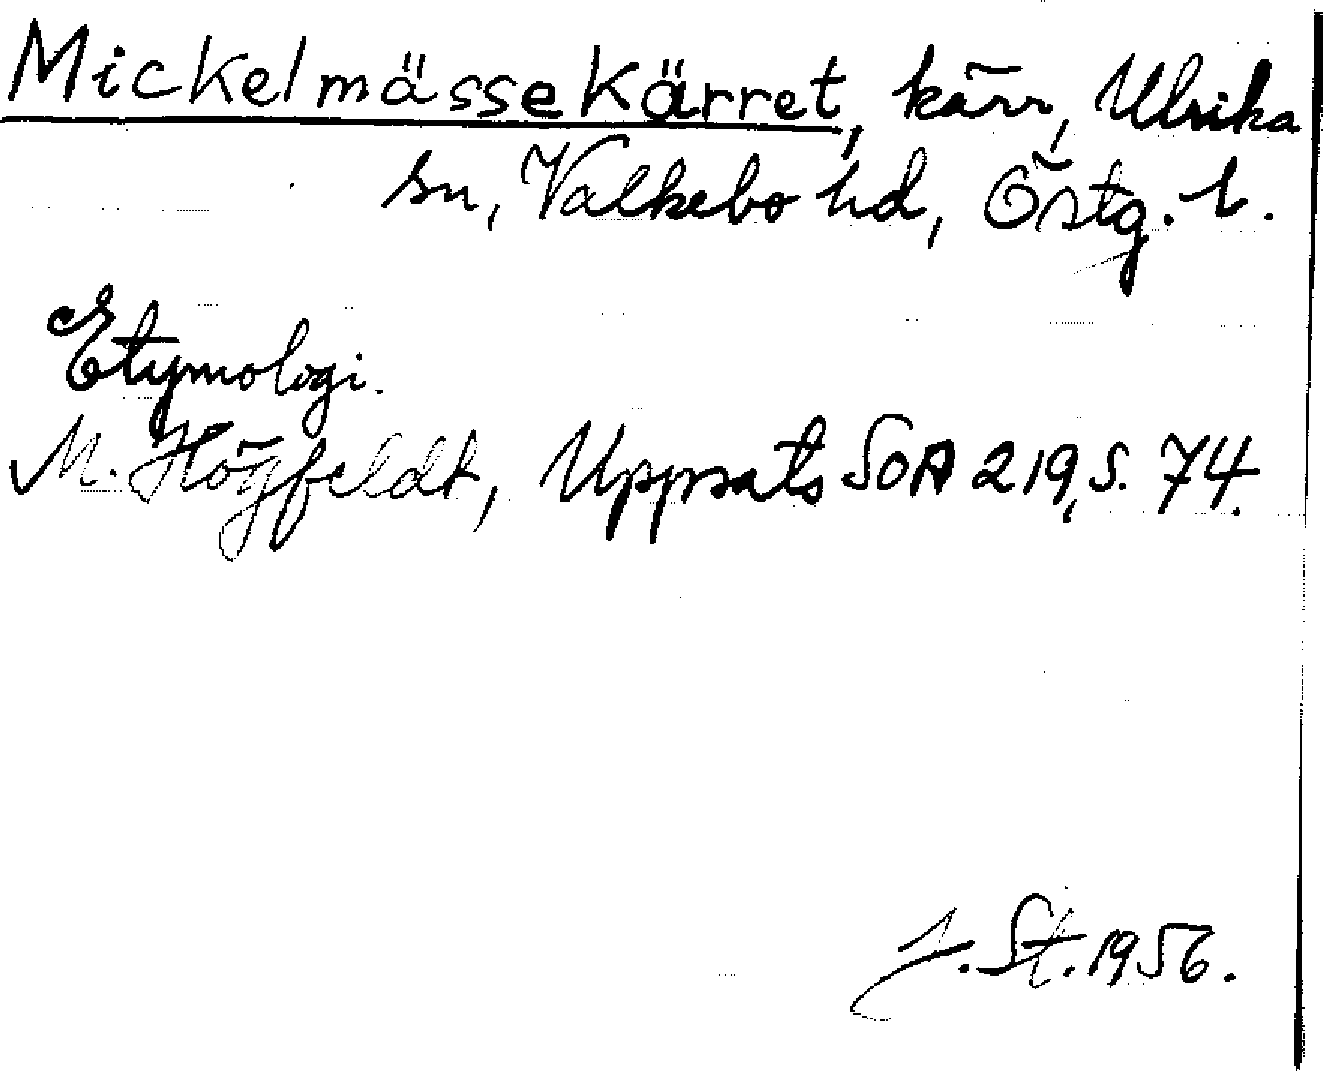 Mickelmässekärret, kärr, Ulrika
sn, Valkebo hd, Östg. l.
Etymologi.
M. Högfeldt, Uppsats SOA 219, s. 74.
J. St. 1956.